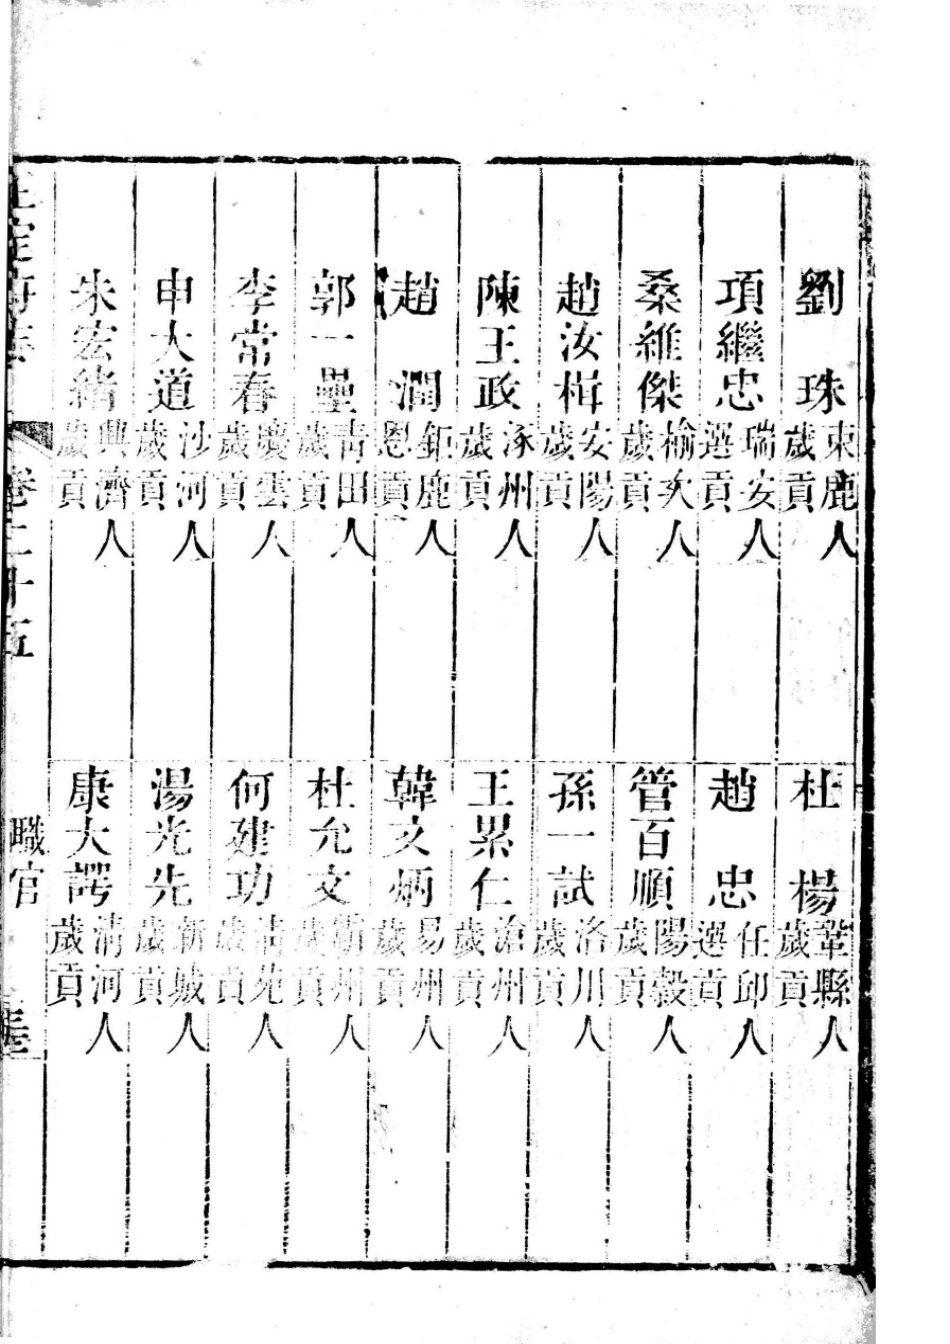 劉珠束鹿人歲貢
杜楊鞏縣人歲貢
項繼忠瑞安人選貢
趙忠任邱人選貢
桑維傑榆次人歲貢
管百順陽穀人歲貢
趙汝楫安陽人歲貢
孫一試洛川人歲貢
陳王政涿州人歲貢
王累仁滄州人歲貢
趙潤鉅鹿人恩貢
韓文炳易州人歲貢
郭一壘青田人歲貢
杜允文霸州人歲貢
李常春慶雲人歲貢
何建功清苑人歲貢
申大道沙河人歲貢
湯光先新城人歲貢
朱宏緒興濟人歲貢
康大諤清河人歲貢
正定府志 卷二十五 職官